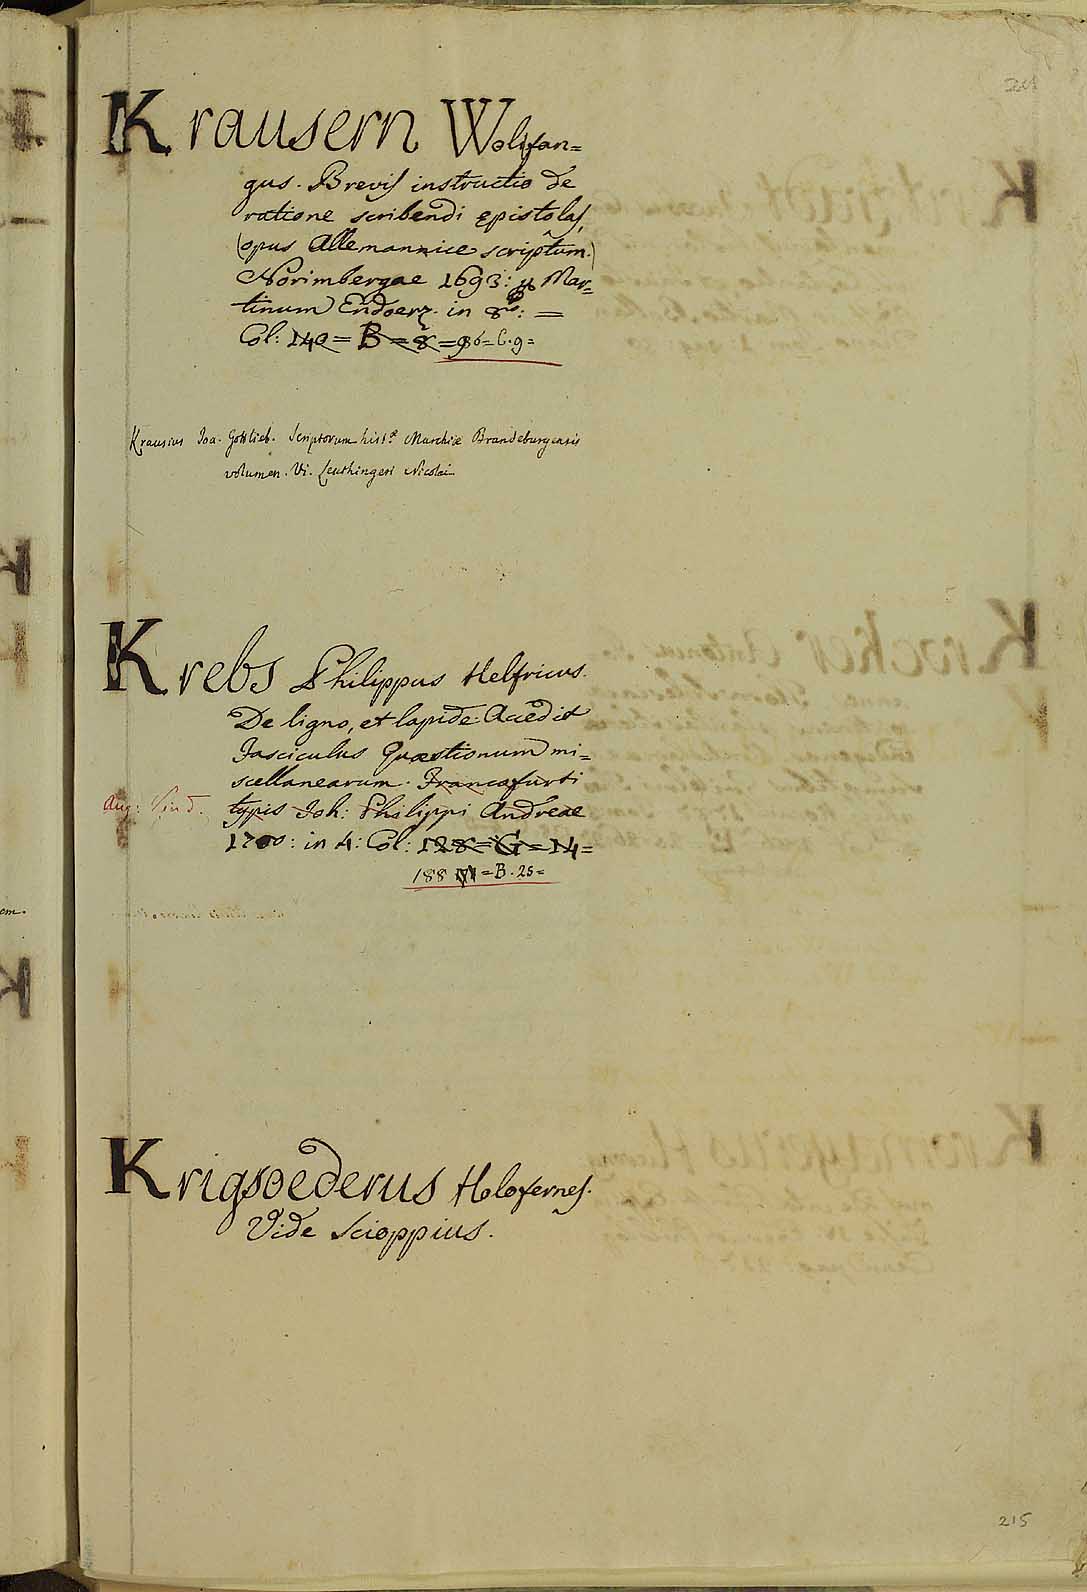 Krausern Wolfan=
gus. Brevis instructio de
ratione scribendi epistolas,
(opus Allemannice scriptum.)
Norimbergae 1693: Mar=
tinum Endoerz. in 8º: =
Col: 140 = B = 8 = 96 = C. 9 =
Krausius Joa. Gottlieb. Scriptorum hist.æ Marchiæ Brandeburgensis
volumen. Vi. Leuthingeri Nicolai
Krebs Philippus Helfricus.
De ligno, et lapide. Accedit
Fasciculus Quæstionum mi=
scellanearum. Francofurti
Aug: Vind. typis Joh: Philippi Andreae
1700: in 4: Col: 128 = G = 14 =
188 = B. 25 =
Krigsoederus Holofernes.
Vide Scioppius.
215